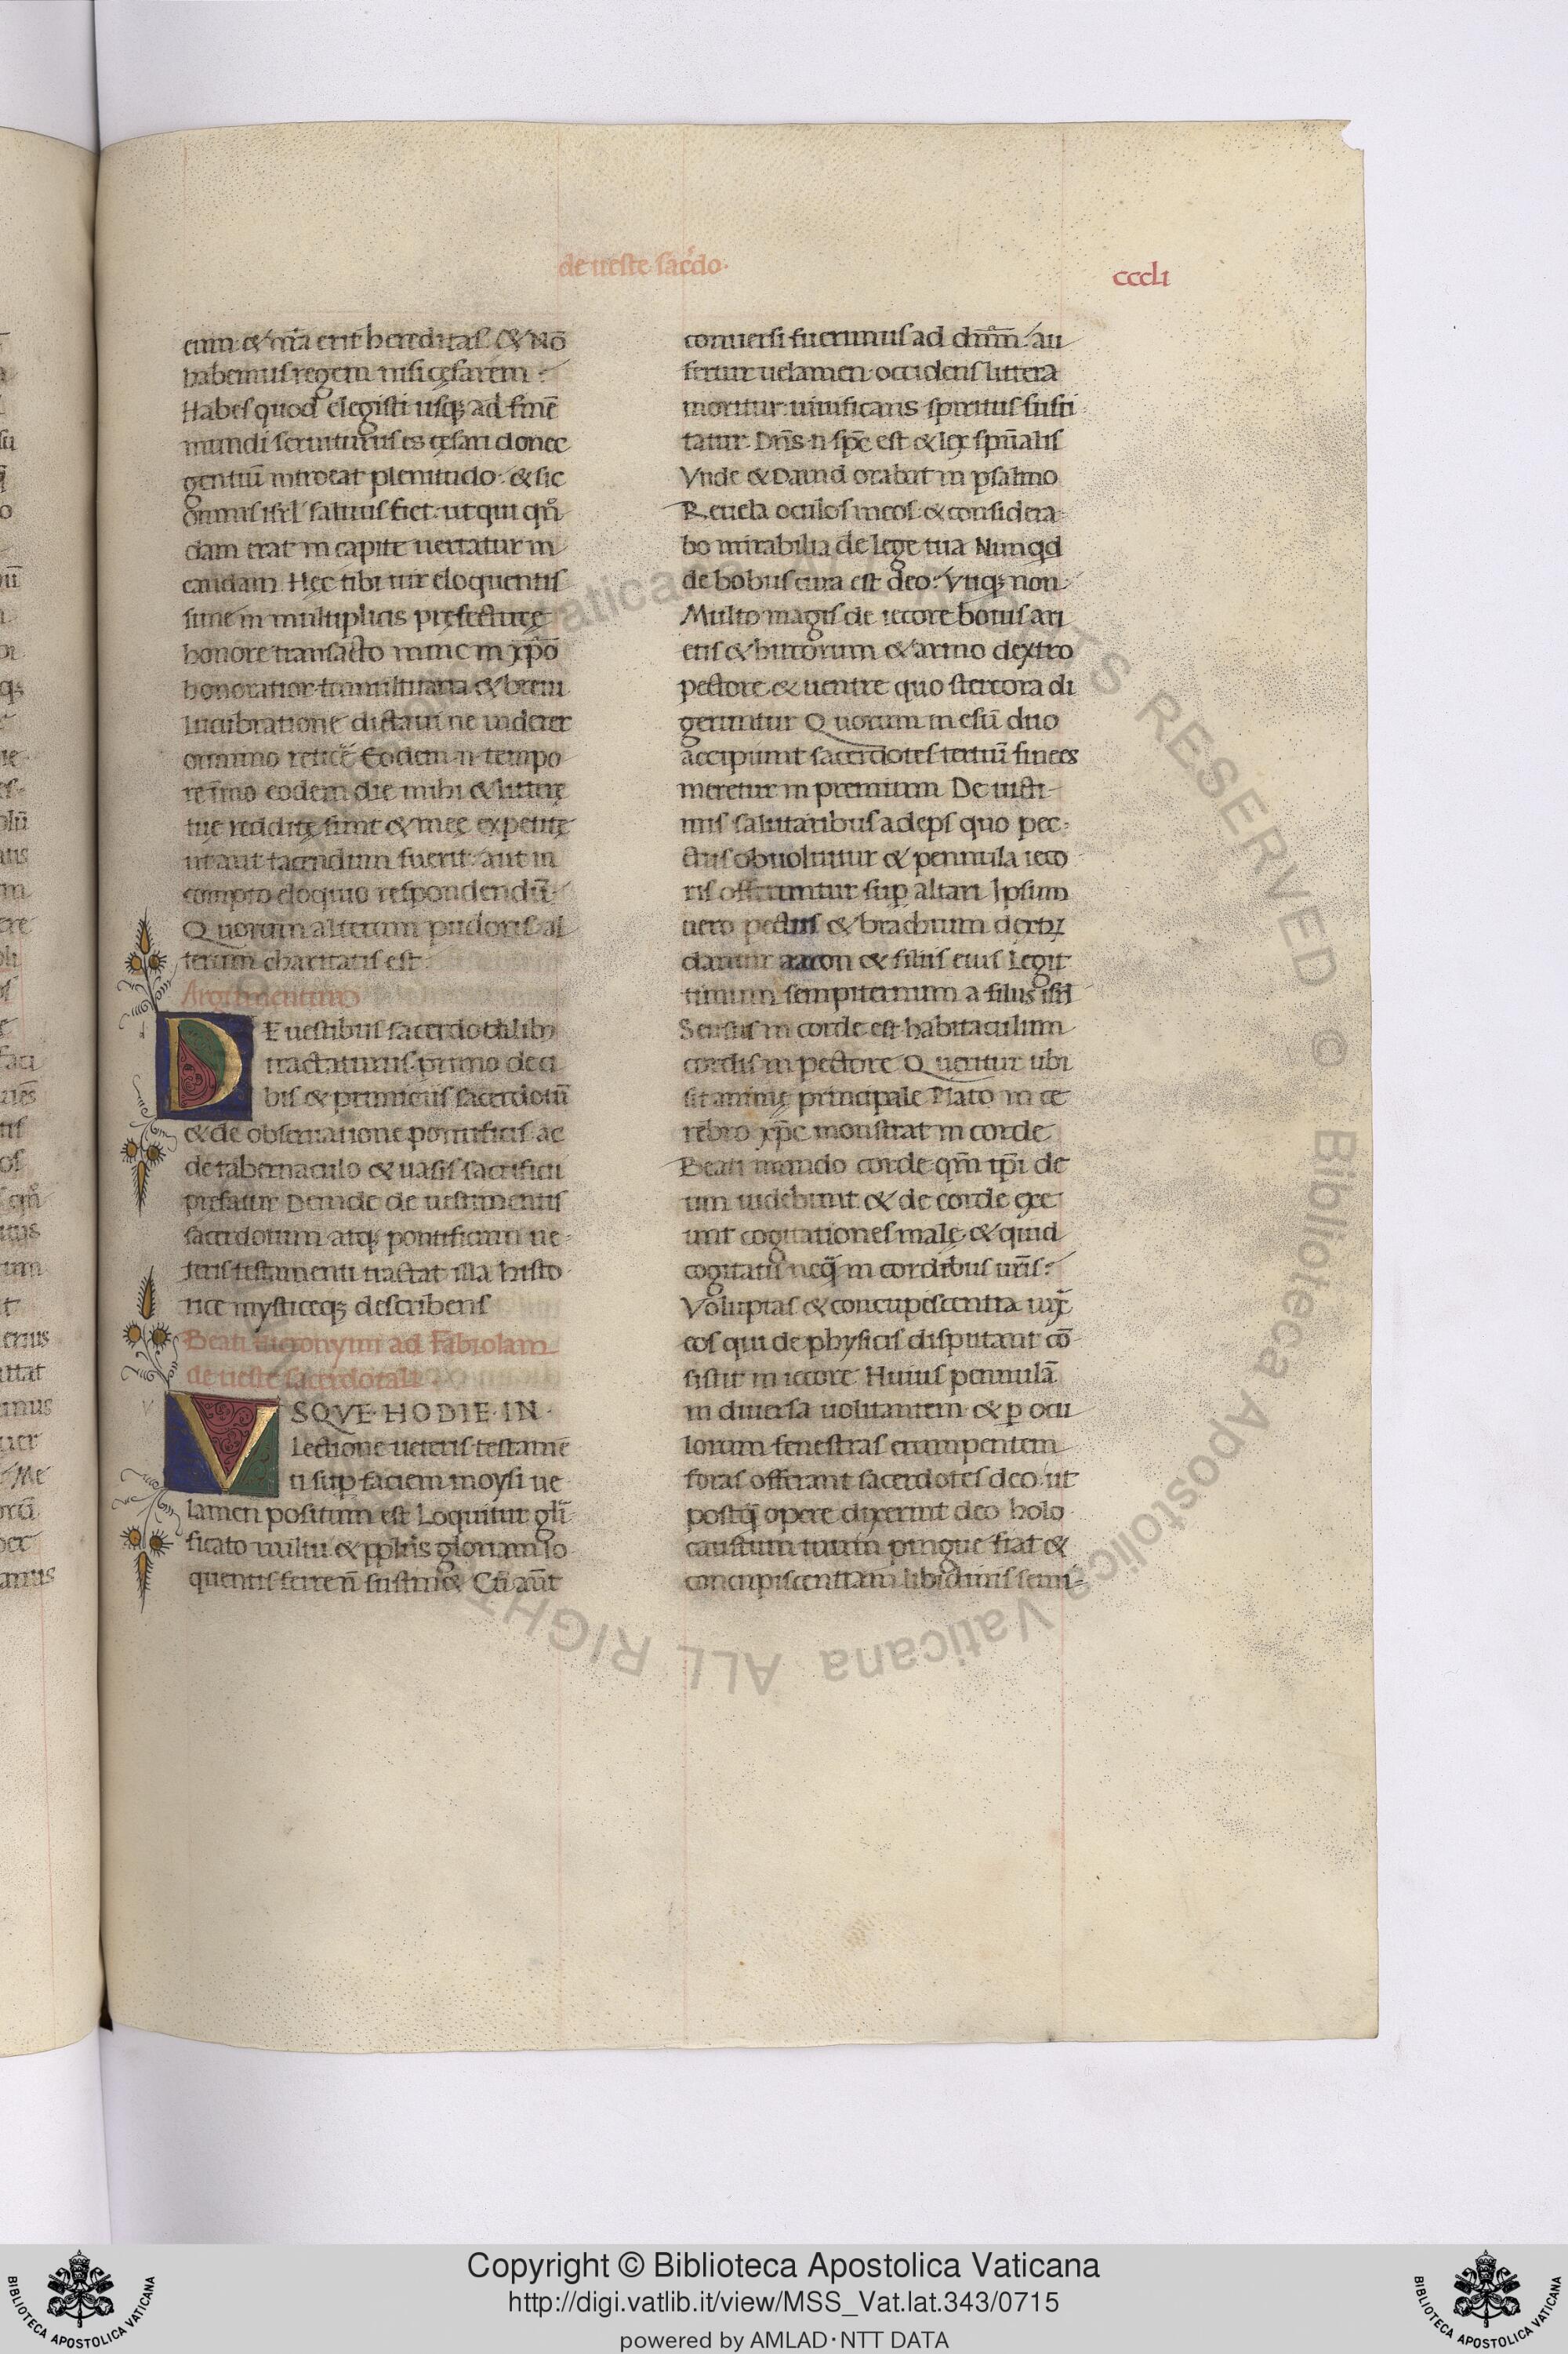 de ueste sac̄do·
cccli
eum· & nr̄a erit hereditas. & Nō
habemus regem nisi cęsarem·
Habes quod elegisti usq; ad finē
mundi seruiturus es cęsari donec
gentiū introeat plenitudo· & sic
omnis isrl̄ saluus fiet· ut qui qn̄
dam erat in capite uertatur in
caudam. Hec tibi uir eloquentis
sime in multiplicis pręfecturę
honore transacto nunc in xp̄o
honoratior tumultuaria & breui
lucubratione dictaui ne uiderer
omnino reticē. Eodem·n·tempo
re īmo eodem die mihi & litterę
tuę redditę sunt & meę expetitę
ut aut tacendum fuerit· aut in
compto eloquio respondendū·
Quorum alterum pudoris· al
terum charitatis est
Argumentum
DE uestibus sacerdotalib;
tractaturus· primo de ci
bis & primiciis sacerdotū
& de obseruatione pontificis ac
de tabernaculo & uasis sacrificii
prefatur Deinde de uestimentis
sacerdotum atq; pontificum ue-
teris testamenti tractat illa histo
rice mysticeq; describens
Beati hieronymi ad Fabiolam
de ueste sacerdotali
VSQVE·HODIE·IN·
lectione ueteris testamē
ti sup faciem moysi ue
lamen positum est Loquitur glī
ficato uultu & pplūs gloriam lo
quentis ferre n̄ sustin& Cū aūt
conuersi fuerimus ad dn̄m· au
fertur uelamen· occidens littera
moritur· uiuificans spiritus susci
tatur. Dn̄s·n·sp̄c est & lex spūalis
Vnde & Dauid orabat in psalmo
Reuela oculos meos· & considera-
bo mirabilia de lege tua Nunqd
de bobus cura est deo· Vtiq; non·
Multo magis de iecore bouis ari
etis & hircorum & armo dextro
pectore & uentre quo stercora di
geruntur Quorum in esū duo
accipiunt sacerdotes tertiū finees
meretur in premium De uicti-
mis salutaribus adeps quo pec-
ctus obuoluitur & pennula ieco
ris offeruntur sup altari Ipsum
uero pectus & brachium dextꝝ
dantur aaron & filiis eius Legit
timum sempiternum a filiis isrl̄
Sensus in corde est habitaculum
cordis in pectore Queritur ubi
sit animę principale Plato in ce
rebro xp̄c monstrat in corde
Beati mundo corde qm̄ ip̄i de
um uidebunt· & de corde exe
unt cogitationes malę· & quid
cogitatis neq̄ in cordibus ur̄is·
Voluptas & concupiscentia iux̄
eos qui de physicis disputant cō
sistit in iecore Huius pennulā
in diuersa uolitantem & p ocu
lorum fenestras erumpentem
foras offerant sacerdotes deo· ut
postq̄ opere dixerint deo holo
caustum tuum pingue fiat &
concupiscentiam libidinis semi-
Copyright © Biblioteca Apostolica Vaticana
http://digi.vatlib.it/view/MSS_Vat.lat.343/0715
powered by AMLAD·NTT DATA
BIBLIOTECA APOSTOLICA VATICANA
BIBLIOTECA APOSTOLICA VATICANA
© Biblioteca Apostolica Vaticana ALL RIGHTS RESERVED